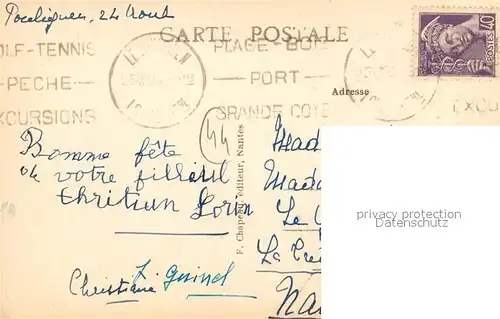 Pouliguen, 24 Août
CARTE POSTALE
GOLF-TENNIS
PECHE
EXCURSIONS
PLAGE-BOIS
PORT
GRANDE COTE
Adresse
POSTES 40
EXCU
44
Bonne fête
à votre filleul
Christian Lorin
Christiane
F. Chapeau, éditeur, Nantes
Mad
Mada
Le
La
Nan
privacy protection
Datenschutz